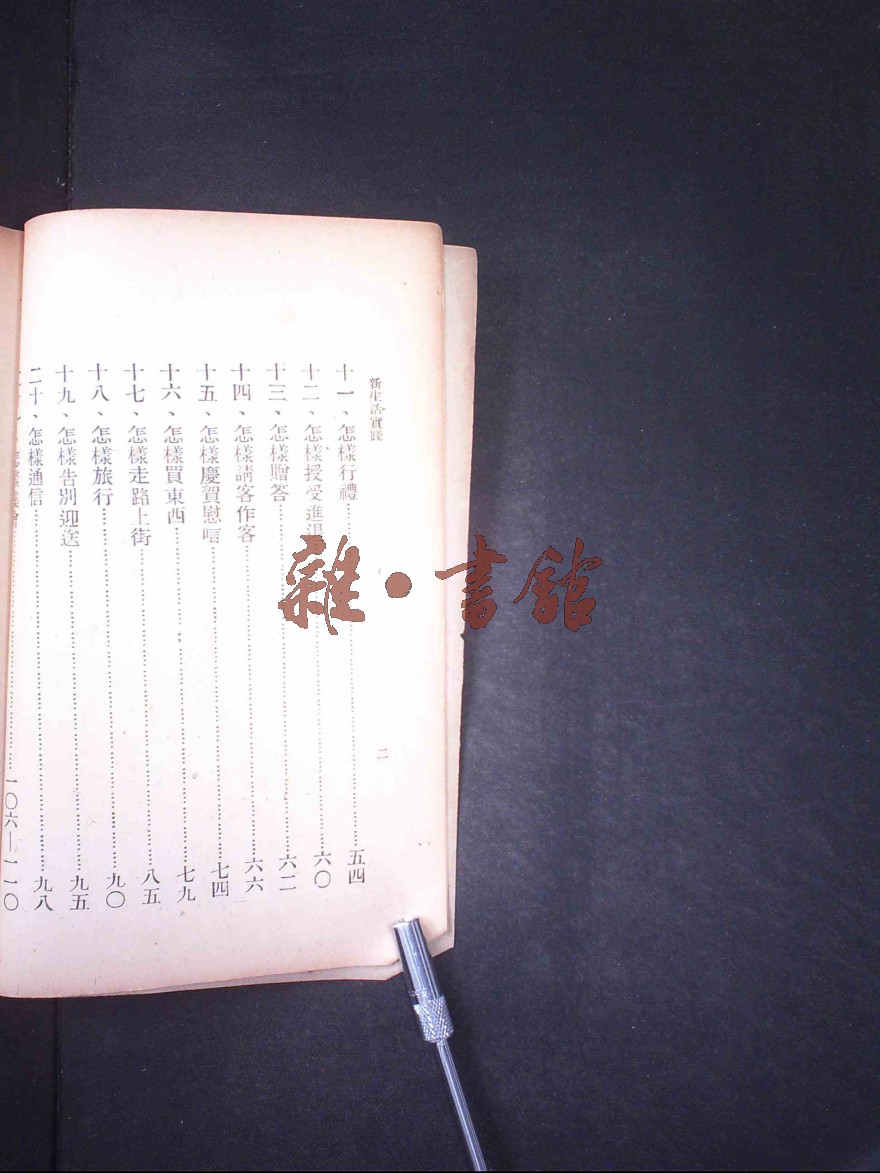 新生活實踐
二
十一、怎樣行禮……五四
十二、怎樣授受進退……六〇
十三、怎樣贈答……六二
十四、怎樣請客作客……六六
十五、怎樣慶賀慰唁……七四
十六、怎樣買東西……七九
十七、怎樣走路上街……八五
十八、怎樣旅行……九〇
十九、怎樣告別迎送……九五
二十、怎樣通信……九八
一〇六—一一〇
雜·書館